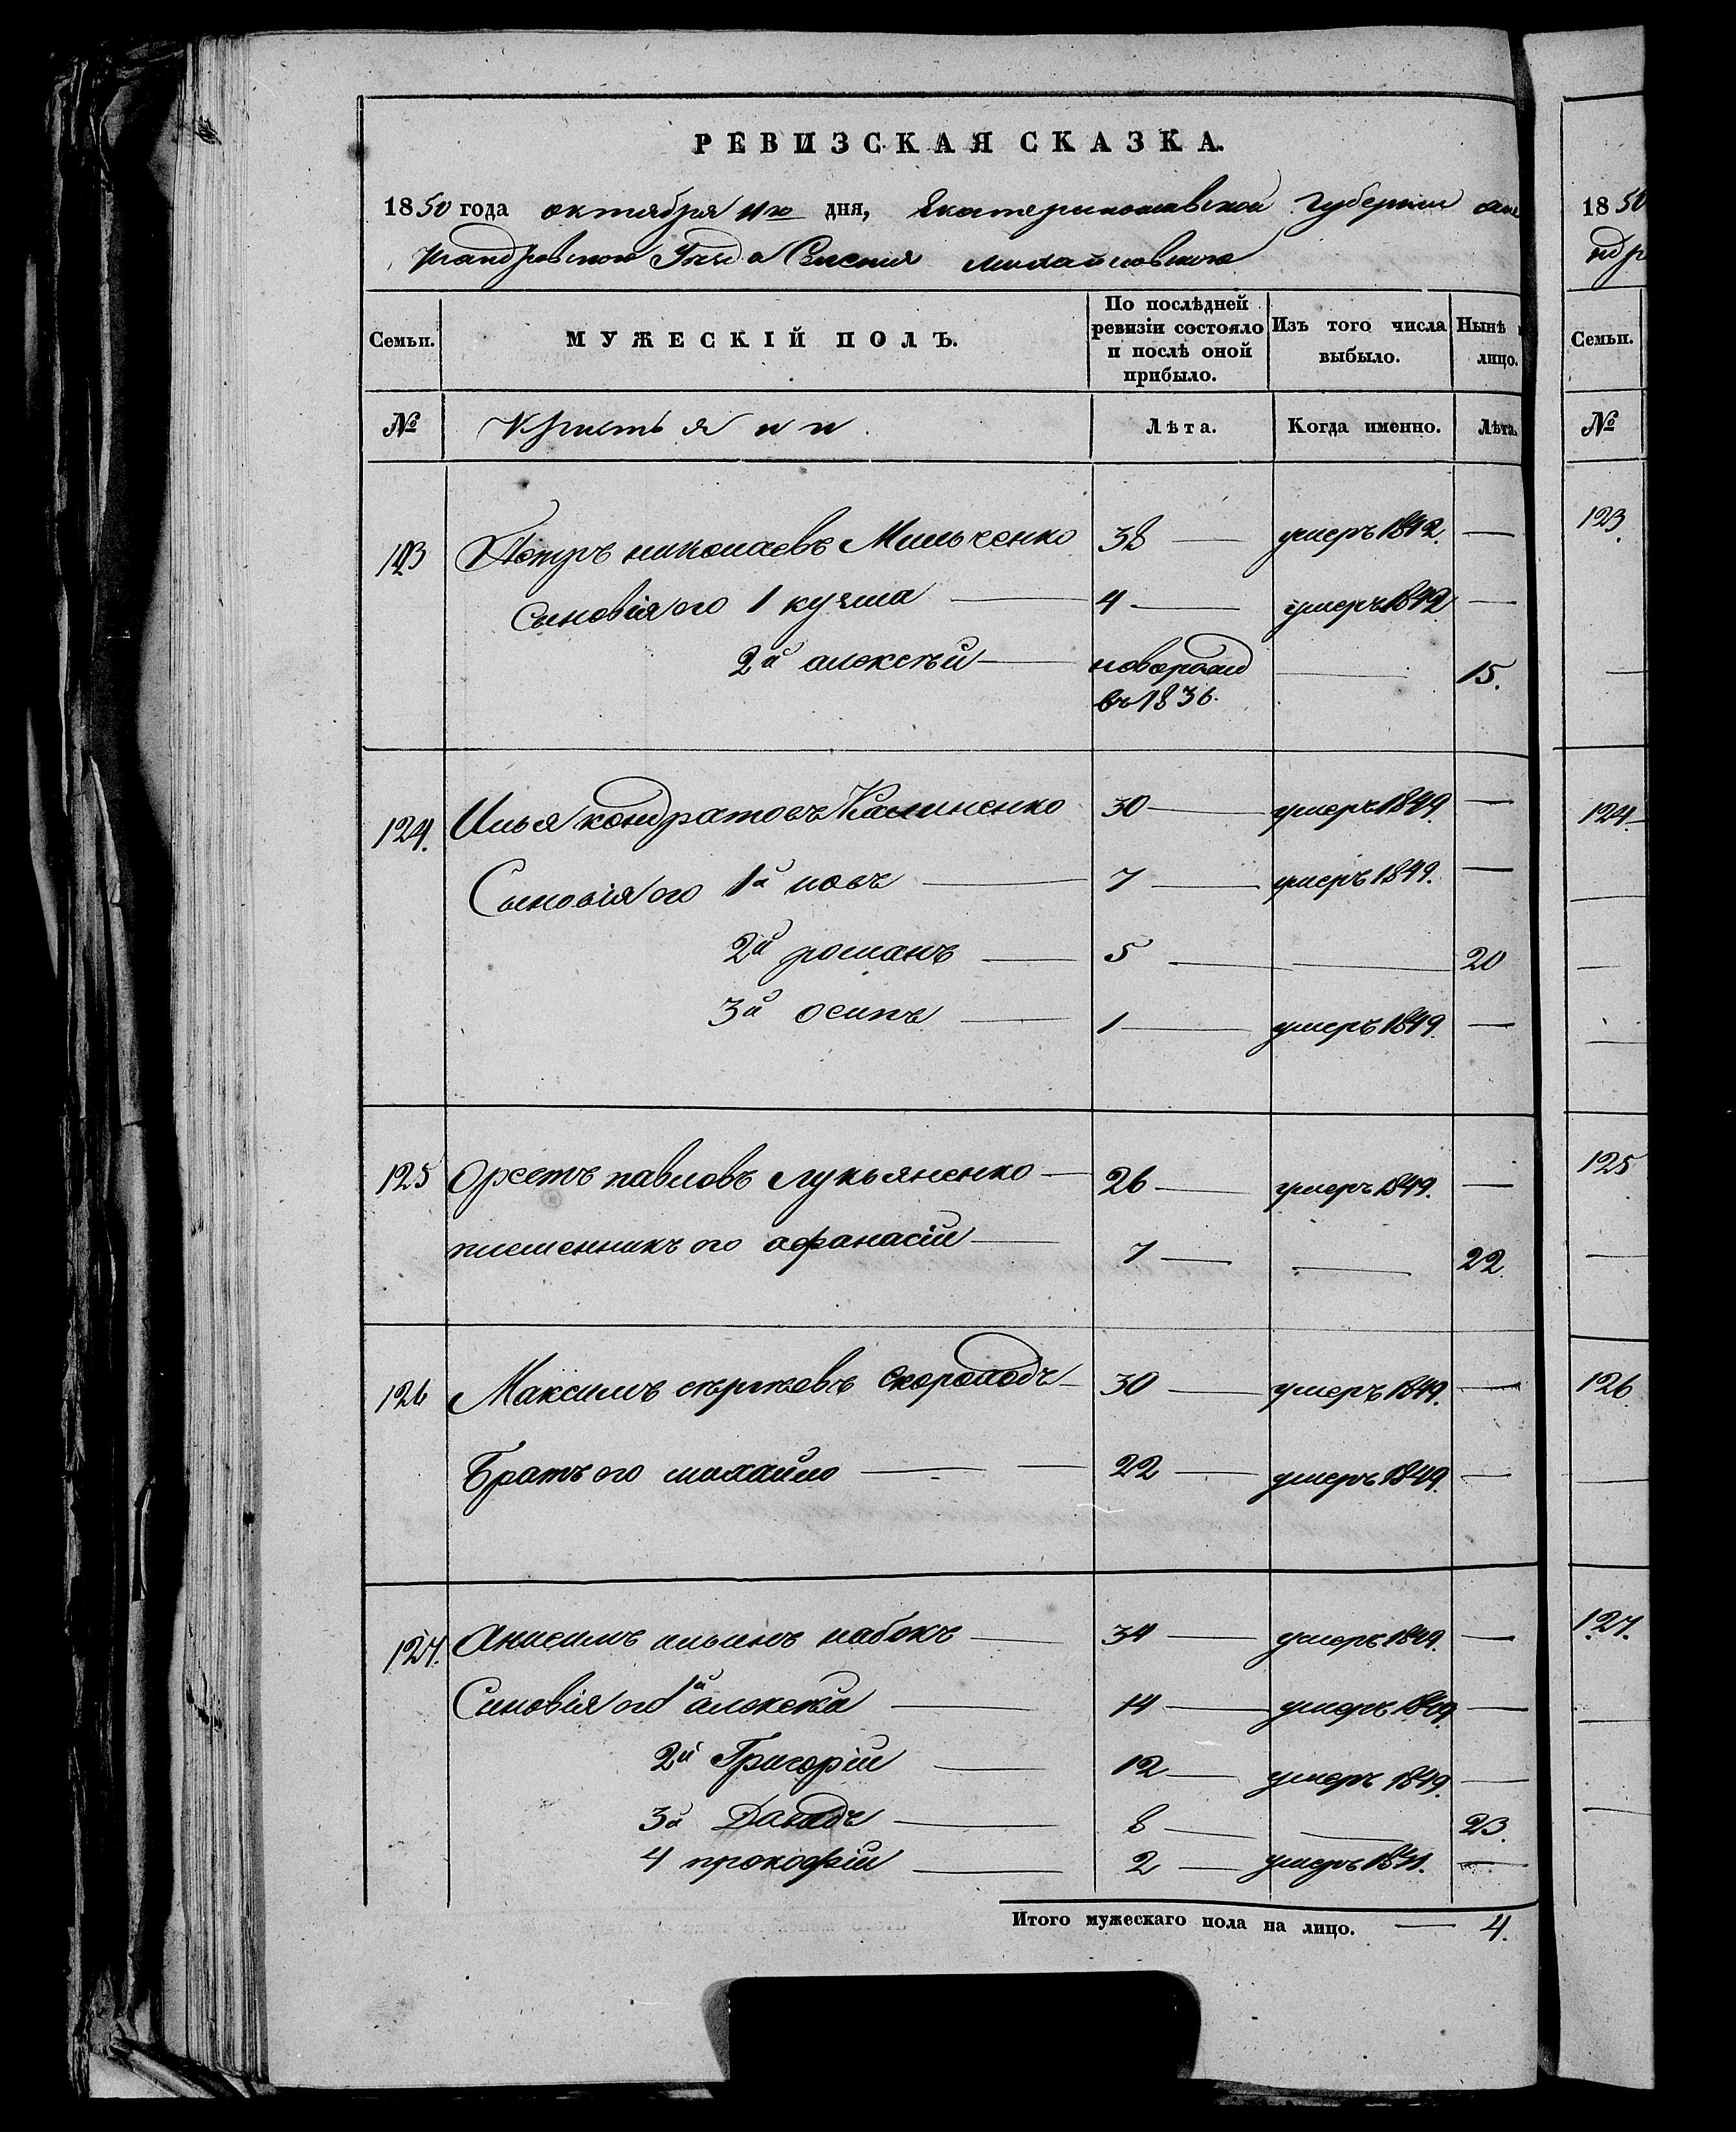 РЕВИЗСКАЯ СКАЗКА.
1850 года октября 11го дня, Екатеринославской Губерніи Але
ксандровскаго Уезда Селенія Михайловскаго
Семьи. МУЖЕСКІЙ ПОЛЪ. По послѣдней ревизіи состояло и послѣ оной прибыло. Изъ того числа выбыло. Нынѣ лицо.
№ Крестьяни. Лѣта. Когда именно. Лѣта.
123 Петръ николаевъ Мильченко 38 — умеръ 1842. —
Сыновія его 1 кузма — 4 — умеръ 1849 —
2й алексѣй — новорожд въ 1836. — 15.
124. Илья кондратовъ Калиненко 30 — умеръ 1849. —
Сыновія его 1й иовъ — 7 — умеръ 1849. —
2й романъ — 5 — — 20
3й осипъ — 1 — умеръ 1849. —
125 Орестъ павловъ лукьяненко — 26 — умеръ 1849. —
племенникъ его афанасій — 7 — — 22.
126 Максимъ сергѣевъ Скороходъ — 30 — умеръ 1849. —
Братъ его михайло — — 22 — умеръ 1849. —
127. Анисимъ ильинъ набокъ — 34 — умеръ 1849. —
Синовія его 1й алексей — 14 — умеръ 1849. —
2й Григорій — 12 — умеръ 1849. —
3й Давидъ — 8 — — 23.
4 прокофій — 2 — умеръ —
Итого мужескаго пола на лицо. — 4.
1850
ндр
Семьи.
№
123.
124.
125
126
127.